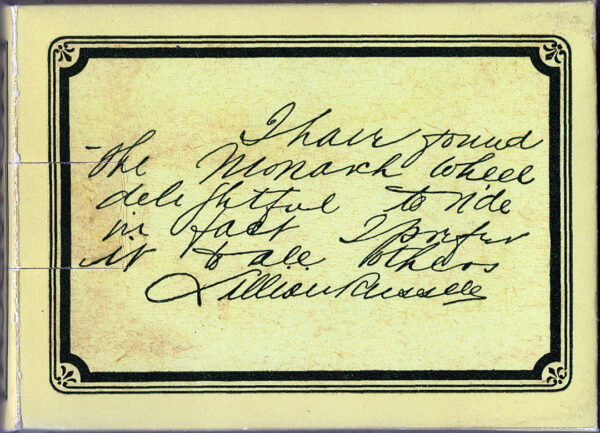 I have found
The Monarch Wheel
delightful to ride
in fact I prefer
it to all others
Lillian Russell